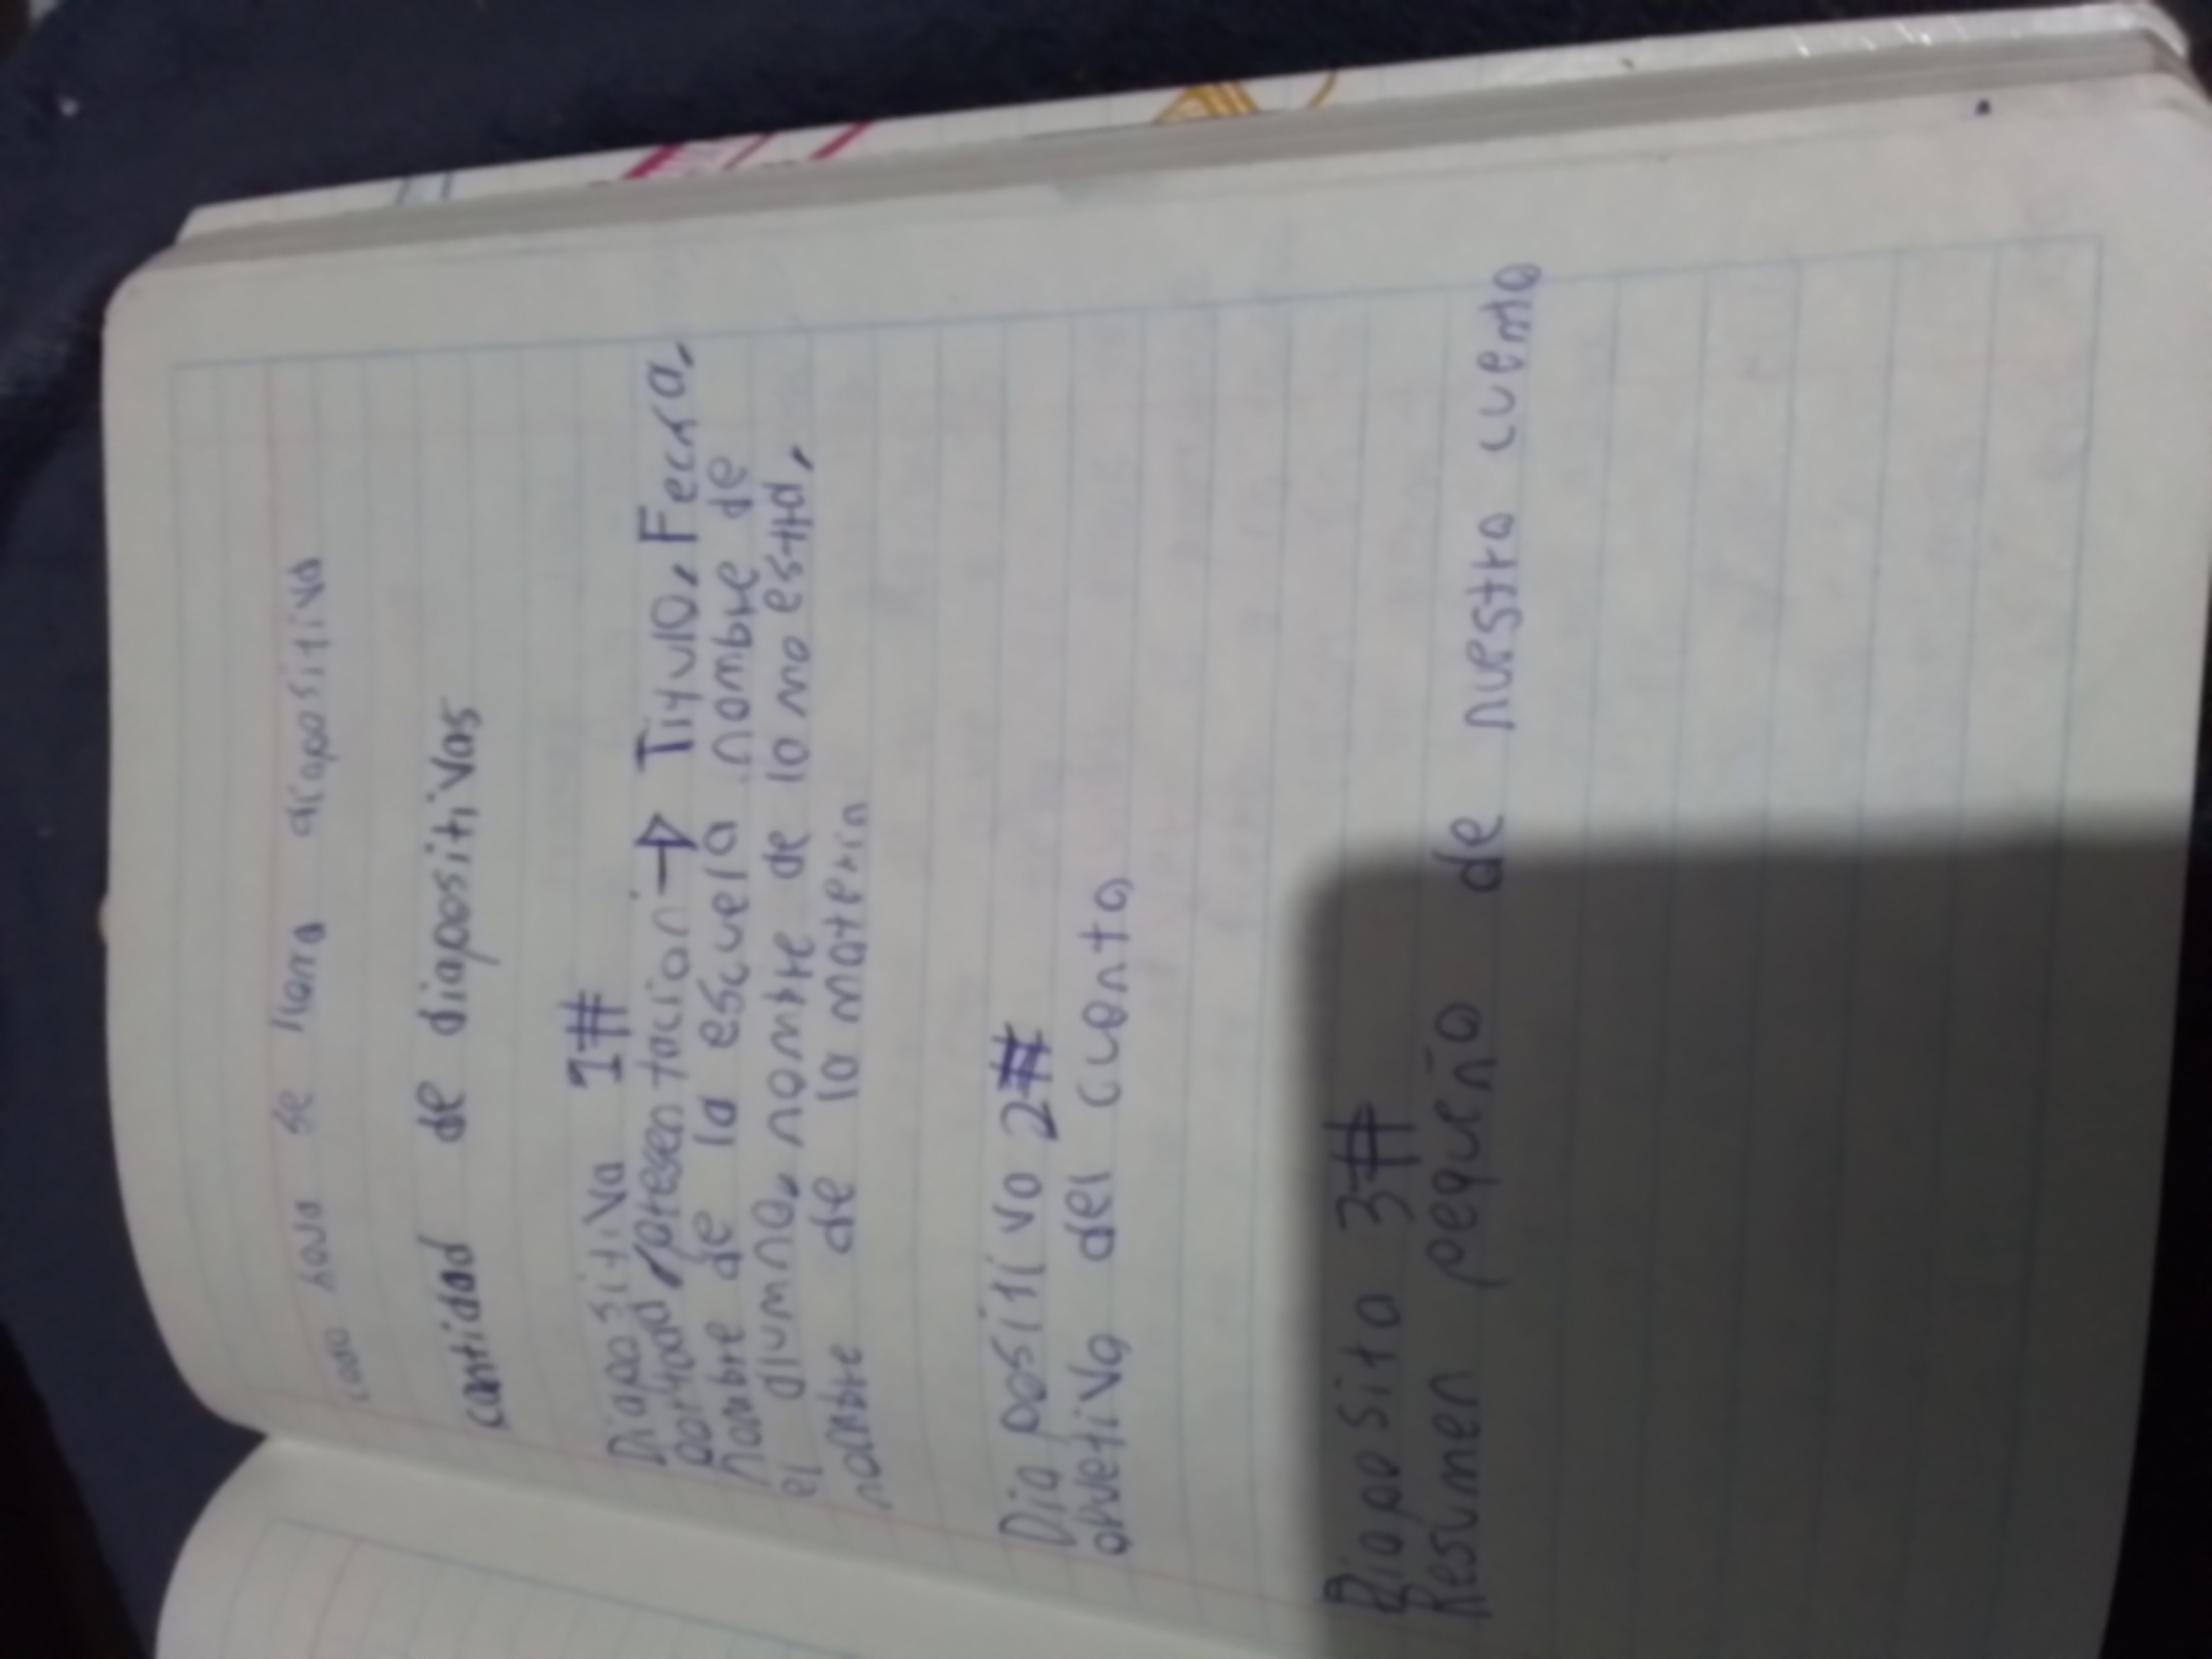 cada hoja se llama diapositiva
cantidad de diapositivas
Diapositiva 1#
portada/presentacion → Titulo, Fecha,
nombre de la escuela, nombre de
el alumno, nombre de la maestra,
nombre de la materia
Diapositiva 2#
objetivo del cuento
Diaposita 3#
Resumen pequeño de nuestro cuento